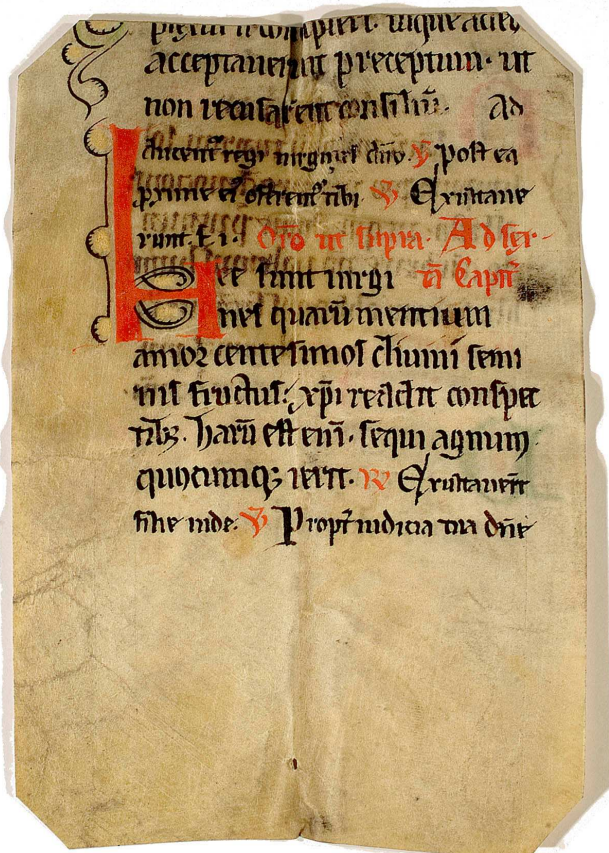 acceptauerint preceptum · ut
non recusarent consiliū · Ad
ducent' regi uirgines dño ℣ Post ea
proxime ei' offerent' tibi ℣ Exultaue
runt · Oro ut supra · Ad sex
Hee sunt uirgi tā Capit'
nes quarū mentium
amor centesimos diuini semi
nis fructus · xp̄i reddit conspec
tibꝫ · Harū est eni · sequi agnum
quocumqꝫ ierit · ℟ Exultauer̄t
filie iude · ℣ Propt' iudicia tua dn̄e